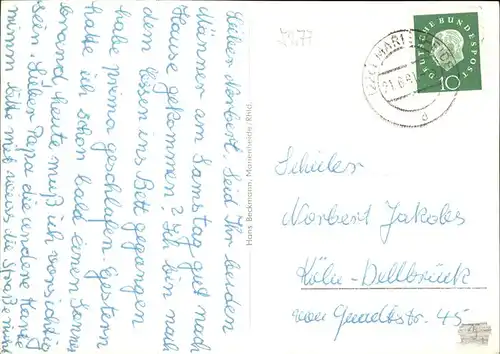 Lieber Norbert. Seid Ihr beiden
Männer am Samstag gut nach
Hause gekommen? Ich bin nach
dem Essen ins Bett gegangen
habe prima geschlafen. Gestern
hatte ich schon bald einen Sonnen
brand, heute muß ich vorsichtig
sein. Lieber Papa die andere Karte
nimm bitte mit
Hans Beckmann, Marienheide/Rhld.
DEUTSCHE BUNDESPOST
10
MARIENHEIDE
Schüler
Norbert Jakobs
Köln-Dellbrück
von Quadtstr. 45